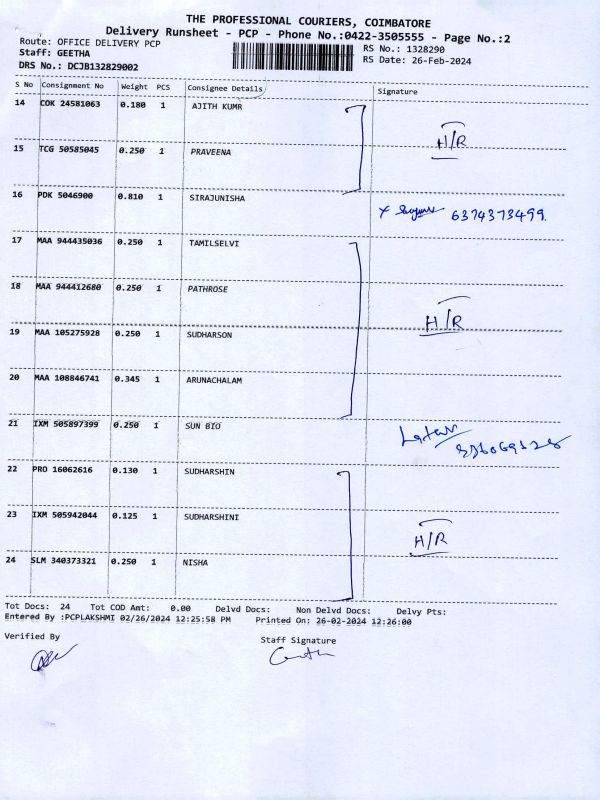 THE PROFESSIONAL COURIERS, COIMBATORE
Delivery Runsheet - PCP - Phone No.:0422-3505555 - Page No.:2
Route: OFFICE DELIVERY PCP
RS No.: 1328290
Staff: GEETHA
RS Date: 26-Feb-2024
DRS No.: DCJB132829002
S No Consignment No Weight PCS Consignee Details Signature
14 COK 24581063 0.180 1 AJITH KUMR
H/R
15 TCG 50585045 0.250 1 PRAVEENA
16 PDK 5046900 0.810 1 SIRAJUNISHA
6374373499.
17 MAA 944435036 0.250 1 TAMILSELVI
18 MAA 944412680 0.250 1 PATHROSE
H/R
19 MAA 105275928 0.250 1 SUDHARSON
20 MAA 108846741 0.345 1 ARUNACHALAM
21 IXM 505897399 0.250 1 SUN BIO
22 PRO 16062616 0.130 1 SUDHARSHIN
23 IXM 505942044 0.125 1 SUDHARSHINI
H/R
24 SLM 340373321 0.250 1 NISHA
Tot Docs: 24 Tot COD Amt: 0.00 Delvd Docs: Non Delvd Docs: Delvy Pts:
Entered By :PCPLAKSHMI 02/26/2024 12:25:58 PM Printed On: 26-02-2024 12:26:00
Verified By
Staff Signature